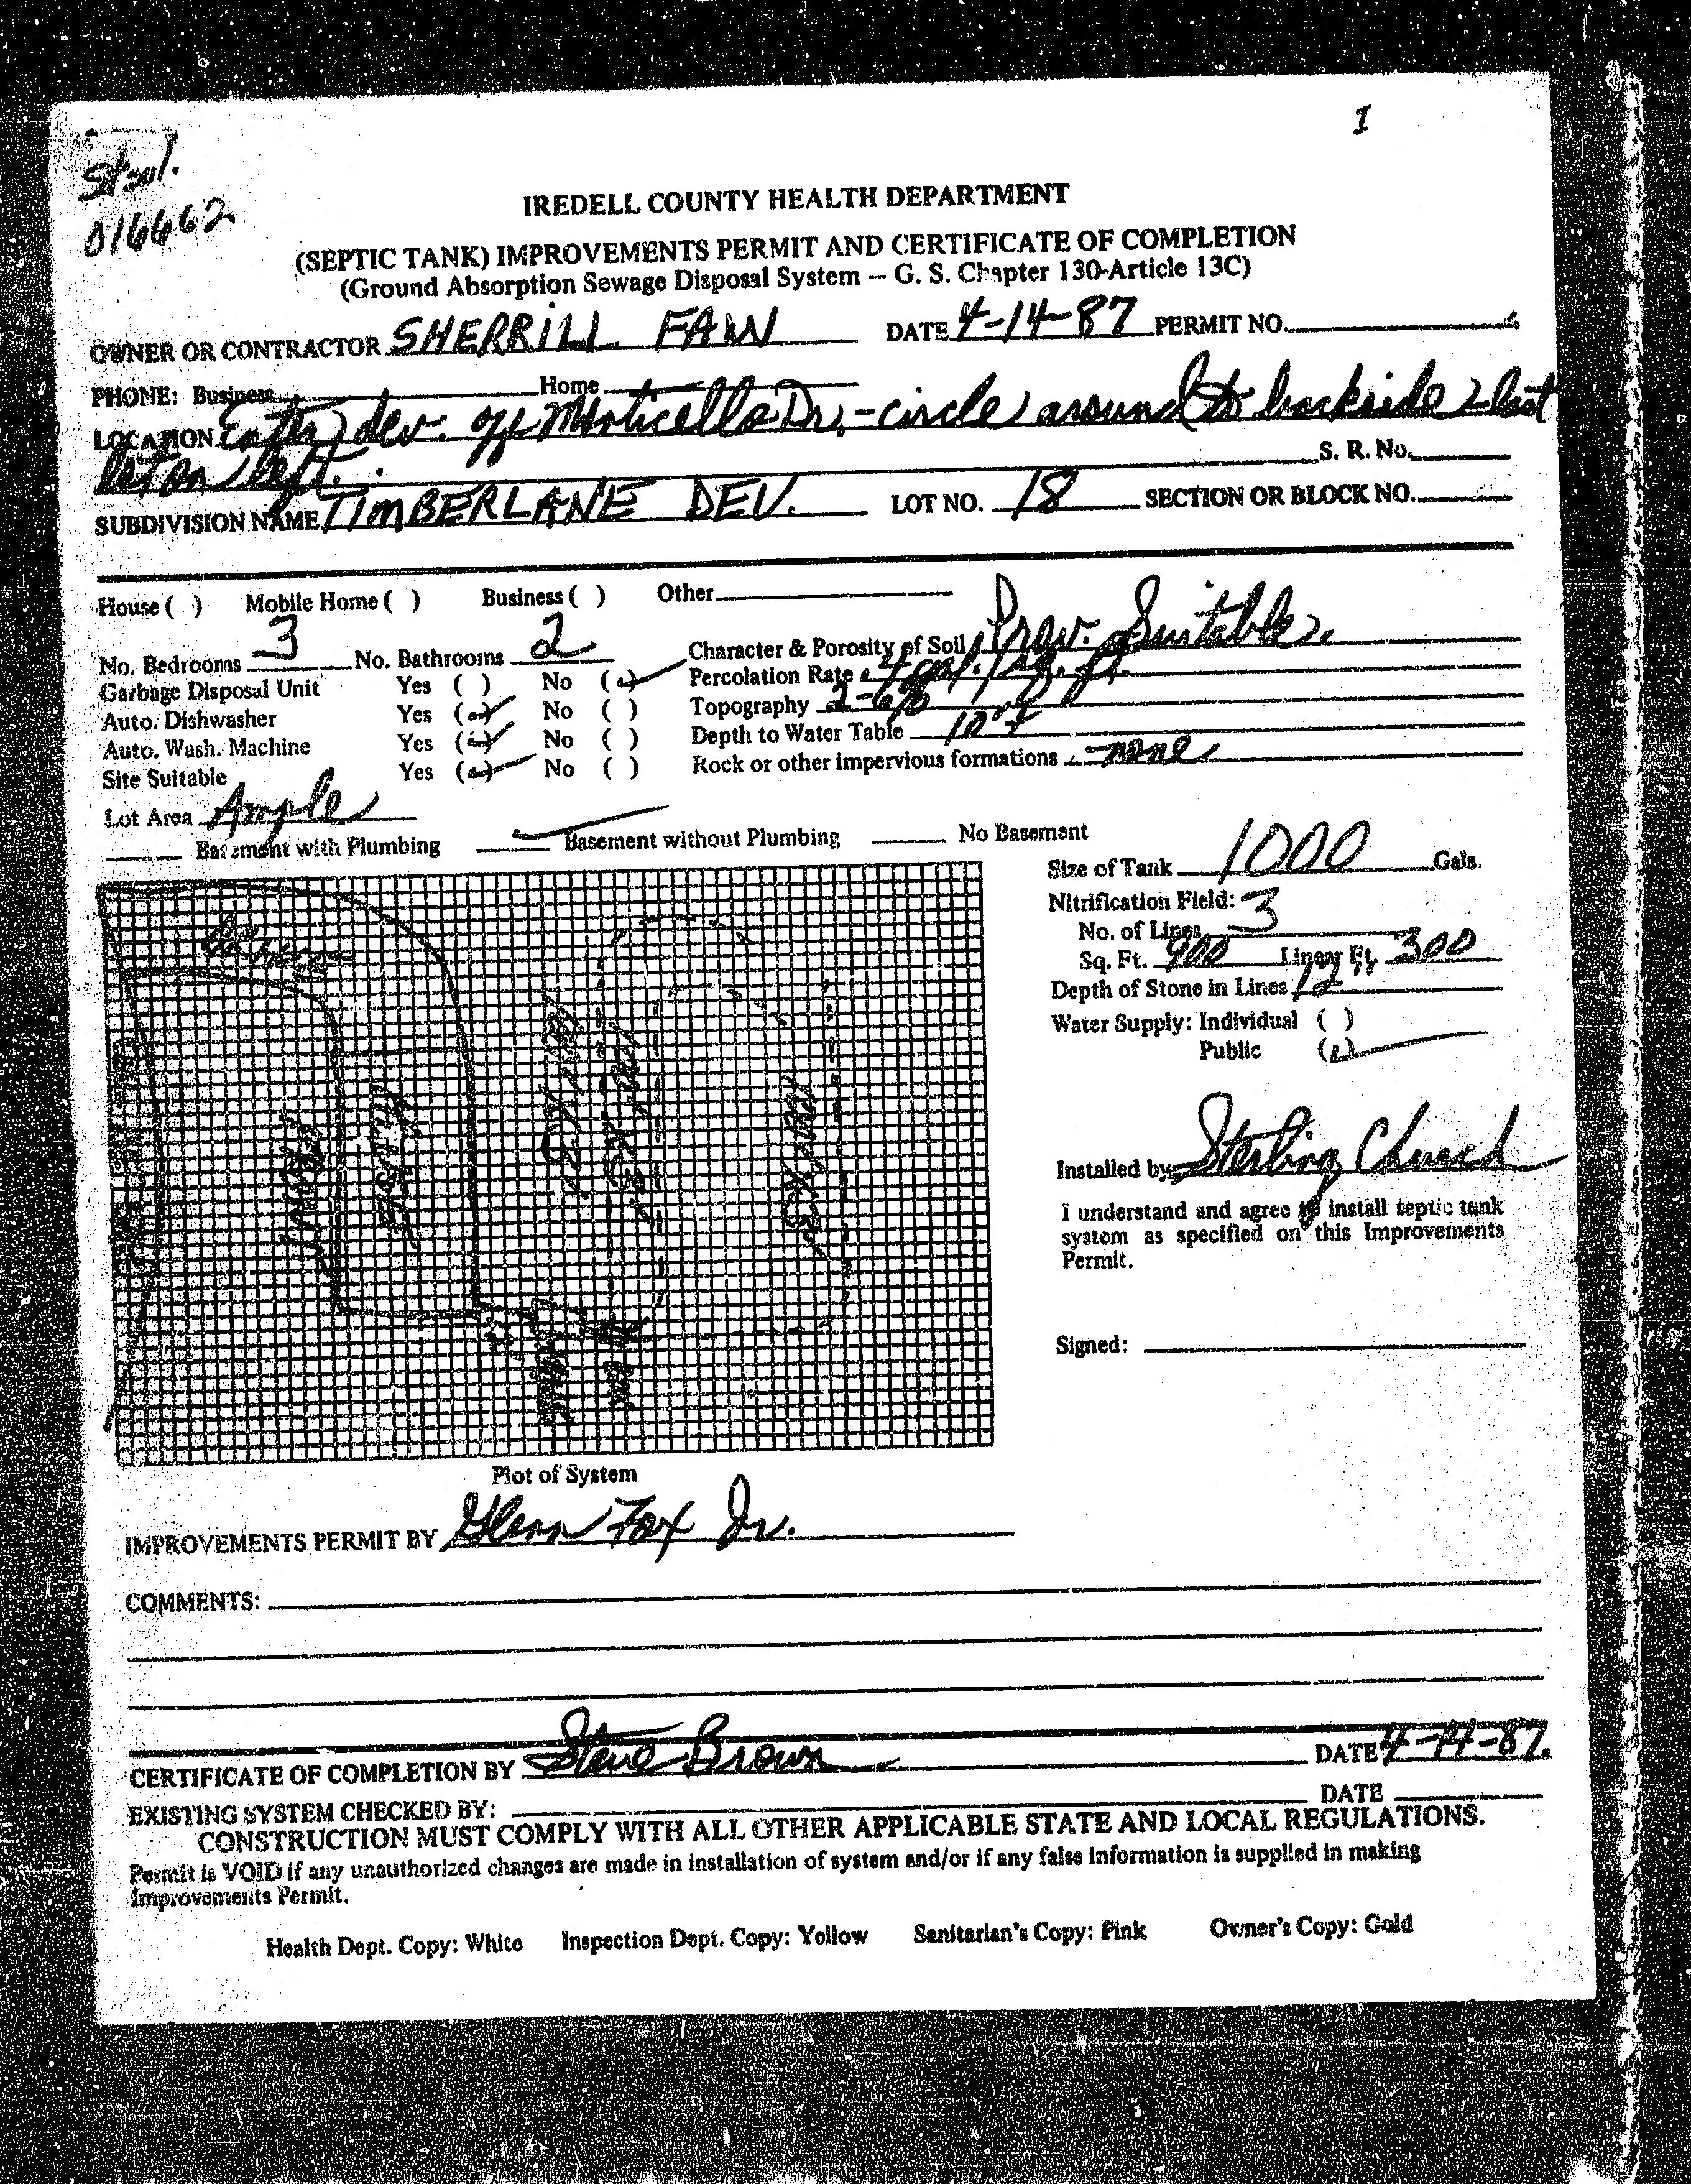 I
016662
IREDELL COUNTY HEALTH DEPARTMENT
(SEPTIC TANK) IMPROVEMENTS PERMIT AND CERTIFICATE OF COMPLETION
(Ground Absorption Sewage Disposal System – G. S. Chapter 130-Article 13C)
OWNER OR CONTRACTOR SHERRILL FAW DATE 4-14-87 PERMIT NO.
PHONE: Business Home
LOCATION Enter dev. off Monticello Dr. - circle around to backside 2 last
lot on left. S. R. No.
SUBDIVISION NAME TIMBERLANE DEV. LOT NO. 18 SECTION OR BLOCK NO.
House ( ) Mobile Home ( ) Business ( ) Other
No. Bedrooms 3 No. Bathrooms 2 Character & Porosity of Soil Prov. Suitable
Garbage Disposal Unit Yes ( ) No (✓) Percolation Rate .4 gal./sq. ft.
Auto. Dishwasher Yes (✓) No ( ) Topography 2-6%
Auto. Wash. Machine Yes (✓) No ( ) Depth to Water Table
Site Suitable Yes (✓) No ( ) Rock or other impervious formations - none
Lot Area Ample
Basement with Plumbing ✓ Basement without Plumbing No Basement
Size of Tank 1000 Gals.
Nitrification Field:
No. of Lines 3
Sq. Ft. 900 Linear Ft. 300
Depth of Stone in Lines 12"
Water Supply: Individual ( )
Public (✓)
HOUSE
Installed by Sterling Church
I understand and agree to install septic tank
system as specified on this Improvements
Permit.
Signed:
Plot of System
IMPROVEMENTS PERMIT BY Glenn Fox Jr.
COMMENTS:
CERTIFICATE OF COMPLETION BY Steve Brown DATE 4-14-87.
EXISTING SYSTEM CHECKED BY: DATE
CONSTRUCTION MUST COMPLY WITH ALL OTHER APPLICABLE STATE AND LOCAL REGULATIONS.
Permit is VOID if any unauthorized changes are made in installation of system and/or if any false information is supplied in making
Improvements Permit.
Health Dept. Copy: White Inspection Dept. Copy: Yellow Sanitarian's Copy: Pink Owner's Copy: Gold